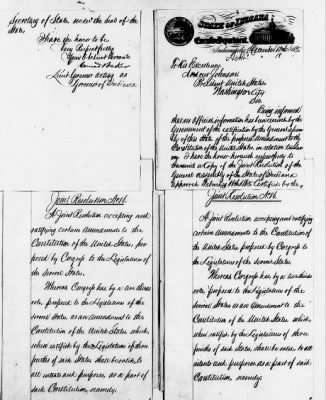 Secretary of State under the Seal of the
State.
I have the honor to be
Very Respectfully
Your Obedient Servant
Conrad Baker
Lieut Governor acting as
Governor of Indiana
STATE OF INDIANA
Executive Department
Indianapolis December
To His Excellency
Andrew Johnson
President United States
Washington City
Sir
Being informed
that no Official information has been received by the
Government of the ratification by the General assem
bly of this State of the proposed amendment to the
Constitution of the United States in relation to Slav
ery I have the honor herewith respectfully to
transmit a Copy of the Joint Resolution of the
General assembly of the State of Indiana
approved February Certified by the
Joint Resolution No 16
A Joint Resolution accepting and
ratifying certain amendments to the
Constitution of the United States, pro
posed by Congress to the Legislatures of
the several States.
Whereas Congress has by a two thirds
vote proposed to the Legislatures of the
several States as an amendment to the
Constitution of the United States which,
when ratified by the Legislatures of three
fourths of said States shall be valid, to
all intents and purposes, as a part of
said Constitution, namely:
Joint Resolution No 16.
A Joint Resolution accepting and ratifying
certain amendments to the Constitution of
the United States proposed by Congress to
the Legislatures of the several States.
Whereas Congress has by a two thirds
vote, proposed to the Legislatures of the
several States as an amendment to the
Constitution of the United States, which,
when ratified by the Legislatures of three
fourths of said States, shall be valid to all
intents and purposes as a part of said
Constitution, namely: